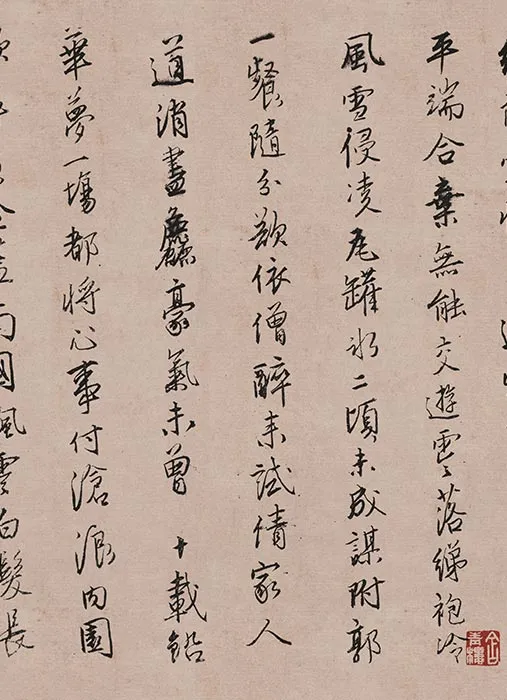 平端合棄無能交遊零落綈袍冷
風雪侵凌瓦罐冰二頃未成謀附郭
一餐隨分欲依僧醉來試倩家人
道消盡麤豪氣未曾 十載鉛
華夢一場都將心事付滄浪內園
金盡南國飄零白髮長